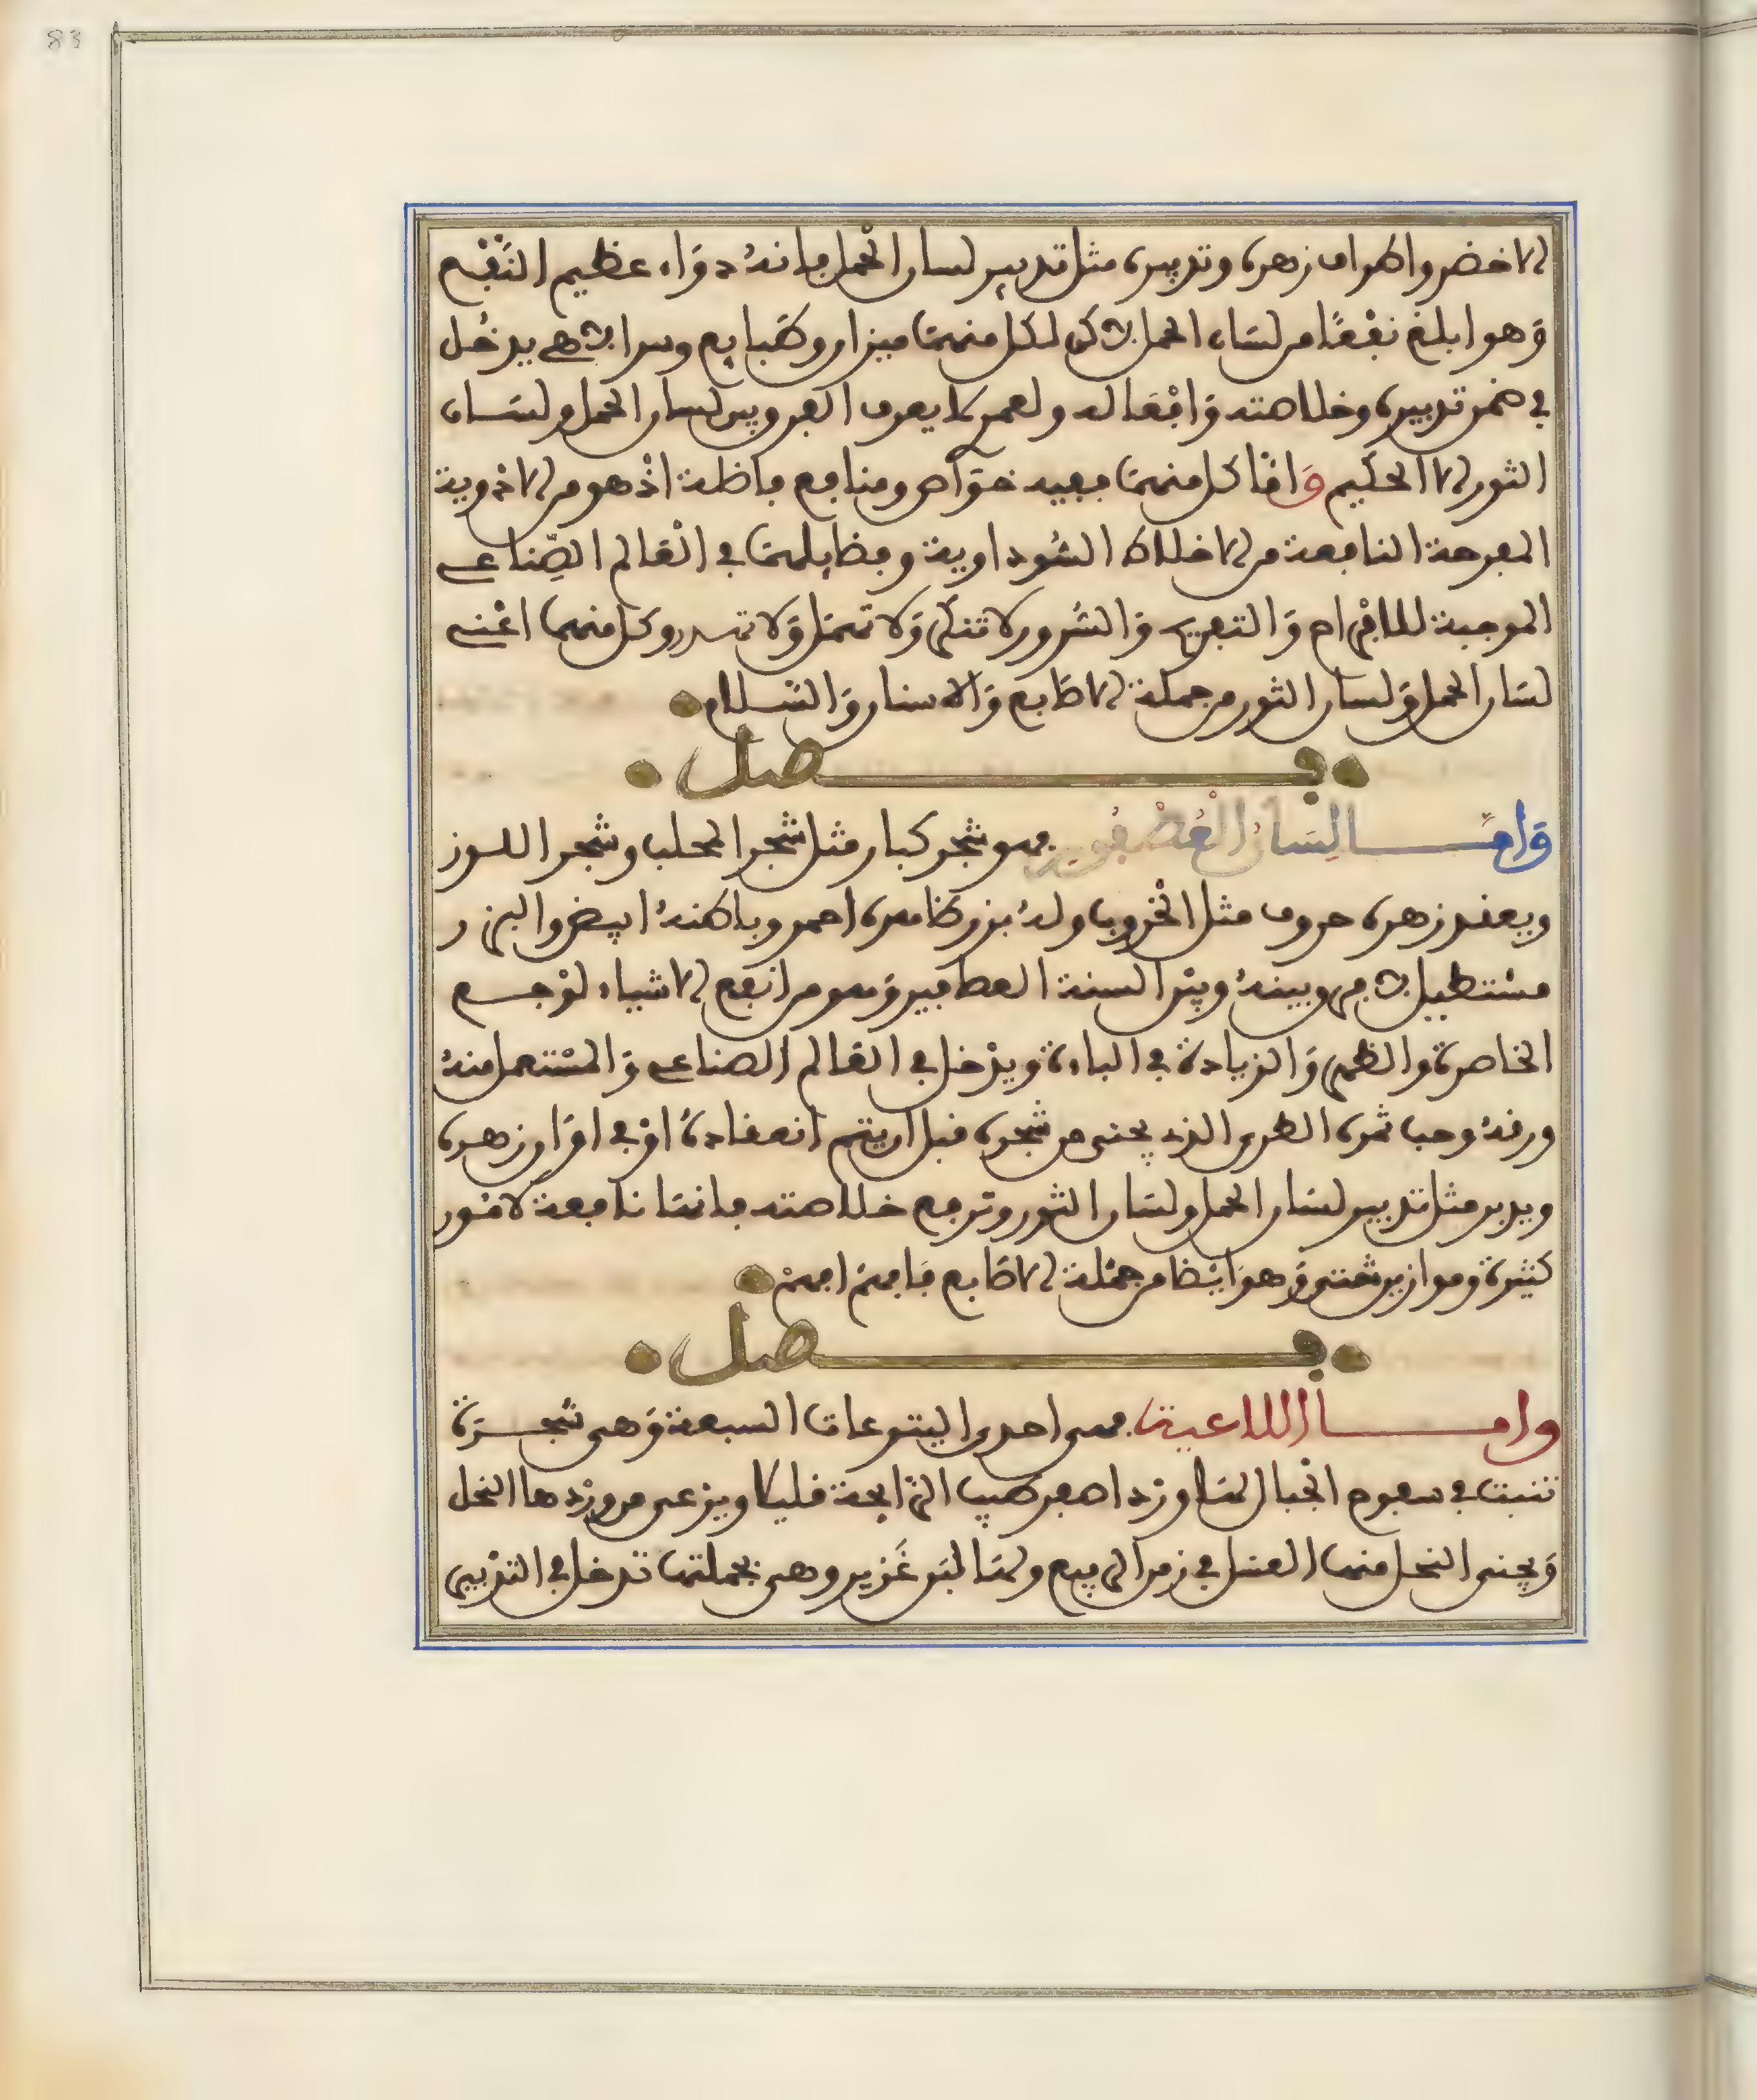 83
الاخضر واطراف زهره وتدبيره مثل تدبير لسان الحمل فانهُ دوَاء عظيم النَّفْع
وَهو ابلغ نفْعًا من لسَان الحمل لاكن لكل منهمَا ميزان وطبَايع وسر الاهي يدخُل
في ضمن تدبيره وخلاصته وَافْعَاله ولعمري لا يعرف الفرق بين لسان الحمل ولسَان
الثور الا الحكيم وَامَّا كل منهمَا ففيه خوَاص ومنافع فاضلة اذْ هو من الادْوية
المفرحة النافعة من الاخلاط السُّوداوية وفضايلهمَا في العَالم الصِّناعي
الموجبة للافْراح وَالتفريح وَالسُّرور لا تنكر وَلا تهمَل وَلا تهدر وكل منهما اعْني
لسَان الحمل وَلسان الثور من جملة الاصَابع وَالاسنان وَالسَّلام
فصل
وَامَّا لِسَانُ الْعُصْفُور فهو شجر كبار مثل شجر المحلب وشجر اللوز
ويعقد زهره حروف مثل الْخروب ولهُ بزر ظاهره احمر وباطنهُ ابيض والبزر
مسْتطيل لا فرق بينهُ وبيْن السنة العصافير وَهو من انفع الاشياء لوَجع
الخاصرة والظهر وَالزيادة في الباءة ويدْخل في العَالم الصناعي وَالمسْتعمل منهُ
ورقهُ وحب ثمره الطري الذي يجنى من شجره قبل ان يتم انعقادهُ اوْ في اوَان زهره
ويدبر مثل تدبير لسَان الحمل ولسَان الثور وترفع خلاصته فانهَا نافعة لامُور
كثيرة وموازين شتى وَهوَ ايْضا من جمْلة الاصَابع فَافهمَ افهمْ
فصل
وامَا اللاعية فهى احدى اليتوعات السبعة وَهى شجرَة
تنبت في سفوح الجْبال لهَا ورْد اصفر طيب الرَّايحة قليلا ويرْعى من ورْدها النحل
وَيجنى النحل منها العسَل في زمن الربيع ولهَا لبَن غَزير وهى بجملتها تدخل في التدْبير